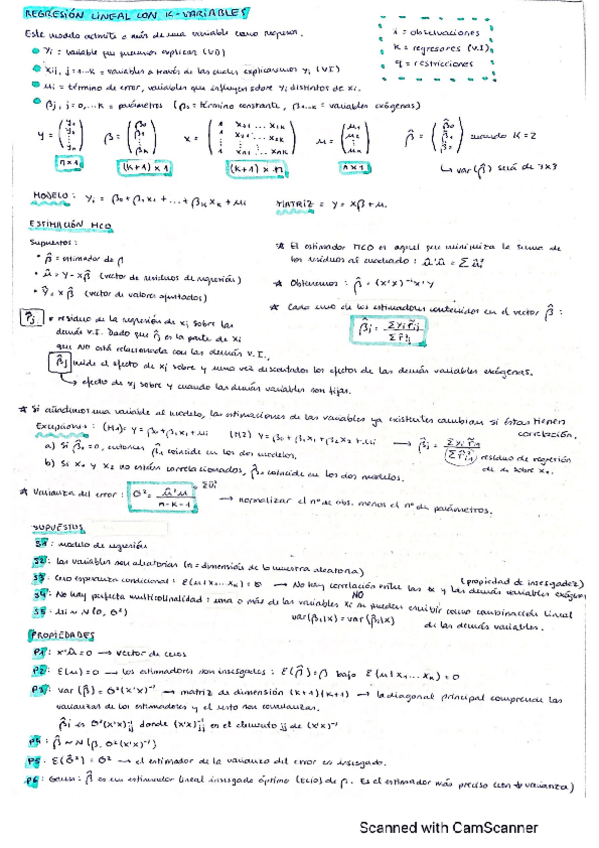 REGRESIÓN LINEAL CON K-VARIABLES
Este modelo admite a más de una variable como regresor.
i = observaciones
K = regresores (V.I)
q = restricciones
Yi = variable que queremos explicar (VD)
Xij, j=1...K = variables a través de las cuales explicamos Yi (VI)
Mi = término de error, variables que influyen sobre Yi distintos de Xi.
βj, j=0,...K = parámetros (β0 = término constante, β1...K = variables exógenas)
cuando K=2
n×1 (K+1)×1 (K+1)×n n×1
↳ var(β̂) será de 3×3
MODELO: Yi = β0+β1X1+...+βKXK+Mi MATRIZ = Y = Xβ+M.
ESTIMACIÓN MCO
Supuestos:
• β̂ = estimador de β
• û = Y - Xβ̂ (vector de residuos de regresión)
• Ŷ = Xβ̂ (vector de valores ajustados)
☆ El estimador MCO es aquel que minimiza la suma de
los residuos al cuadrado: û'û = Σû²i
☆ Obtenemos: β̂ = (X'X)⁻¹X'Y
☆ Cada uno de los estimadores contenidos en el vector β̂:
β̂j = ΣYi r̂ij / Σr̂²ij
r̂j = residuo de la regresión de Xj sobre las
demás V.I. Dado que r̂j es la parte de Xj
que no está relacionada con las demás V.I.,
β̂j mide el efecto de Xj sobre Y una vez descontados los efectos de las demás variables exógenas.
↳ efecto de Xj sobre Y cuando las demás variables son fijas.
☆ Si añadimos una variable al modelo, las estimaciones de las variables ya existentes cambian si éstas tienen
correlación.
Excepciones: (M1): Y = β0+β1X1+Mi (M2) Y = β0+β1X1+β2X2+Mi
a) Si β̂2=0, entonces β̂1 coincide en los dos modelos.
residuo de regresión
b) Si X1 y X2 no están correlacionados, β̂1 coincide en los dos modelos.
☆ Varianza del error: σ̂² = û'û / n-K-1 → Σû²i → normalizar el nº de obs. menos el nº de parámetros.
SUPUESTOS
S1: modelo de regresión
S2: las variables son aleatorias (n = dimensión de la muestra aleatoria)
S3: Cero esperanza condicional: E(M|X1...XK)=0 → No hay correlación entre las (propiedad de insesgadez) y las demás variables exógenas
S4: No hay perfecta multicolinealidad: una o más de las variables Xi NO se pueden escribir como combinación lineal
de las demás variables.
S5: Mi ~ N(0, σ²)
PROPIEDADES
P1: X'û=0 → vector de ceros
P2: E(M)=0 → los estimadores son insesgados: E(β̂)=β bajo E(M|X1...XK)=0
P3: var(β̂)=σ²(X'X)⁻¹ → matriz de dimensión (K+1)(K+1) → la diagonal principal comprende las
varianzas de los estimadores y el resto son covarianzas.
β̂j es σ²(X'X)⁻¹jj donde (X'X)⁻¹jj es el elemento jj de (X'X)⁻¹
P4: β̂ ~ N(β, σ²(X'X)⁻¹)
P5: E(σ̂²) = σ² → el estimador de la varianza del error es insesgado.
P6: Gauss: β̂ es un estimador lineal insesgado óptimo (ELIO) de β. Es el estimador más preciso (con ↓ varianza)
Scanned with CamScanner